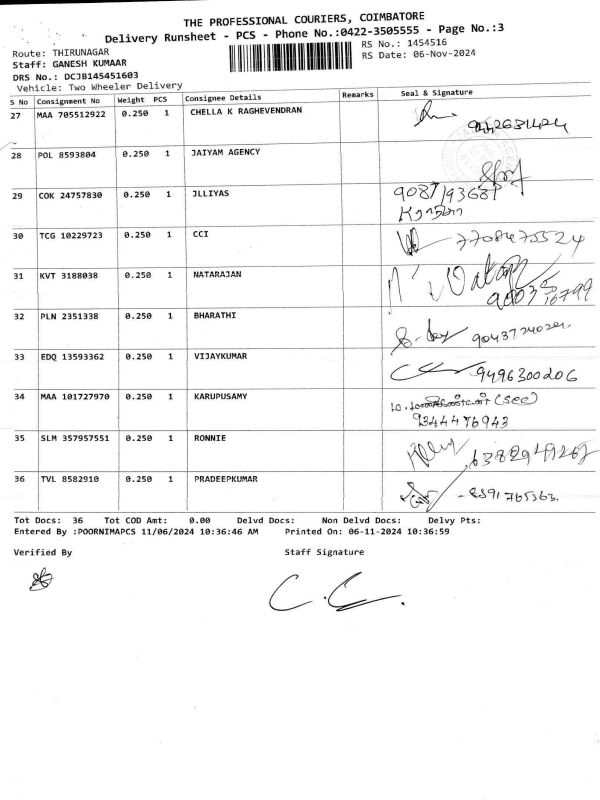 THE PROFESSIONAL COURIERS, COIMBATORE
Delivery Runsheet - PCS - Phone No.:0422-3505555 - Page No.:3
Route: THIRUNAGAR
RS No.: 1454516
Staff: GANESH KUMAAR
RS Date: 06-Nov-2024
DRS No.: DCJB145451603
Vehicle: Two Wheeler Delivery
S No Consignment No Weight PCS Consignee Details Remarks Seal & Signature
27 MAA 705512922 0.250 1 CHELLA K RAGHEVENDRAN
28 POL 8593804 0.250 1 JAIYAM AGENCY
29 COK 24757830 0.250 1 JLLIYAS
30 TCG 10229723 0.250 1 CCI 7708475524
31 KVT 3188038 0.250 1 NATARAJAN
32 PLN 2351338 0.250 1 BHARATHI
33 EDQ 13593362 0.250 1 VIJAYKUMAR 9496300206
34 MAA 101727970 0.250 1 KARUPUSAMY
9344476943
35 SLM 357957551 0.250 1 RONNIE
36 TVL 8582910 0.250 1 PRADEEPKUMAR
Tot Docs: 36 Tot COD Amt: 0.00 Delvd Docs: Non Delvd Docs: Delvy Pts:
Entered By :POORNIMAPCS 11/06/2024 10:36:46 AM Printed On: 06-11-2024 10:36:59
Verified By Staff Signature